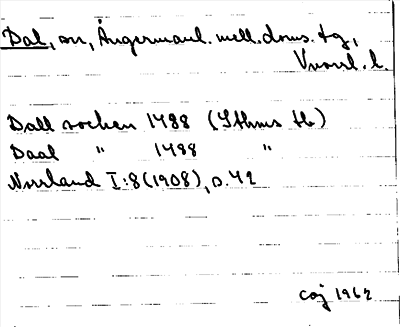 Dal, sn, Ångermanl. mell. doms. tg,
Vnorrl. l.
Dall sochen 1488 (Sthms tb)
Daal " 1488 "
Norrland I:8 (1908), s. 42
CGJ 1962